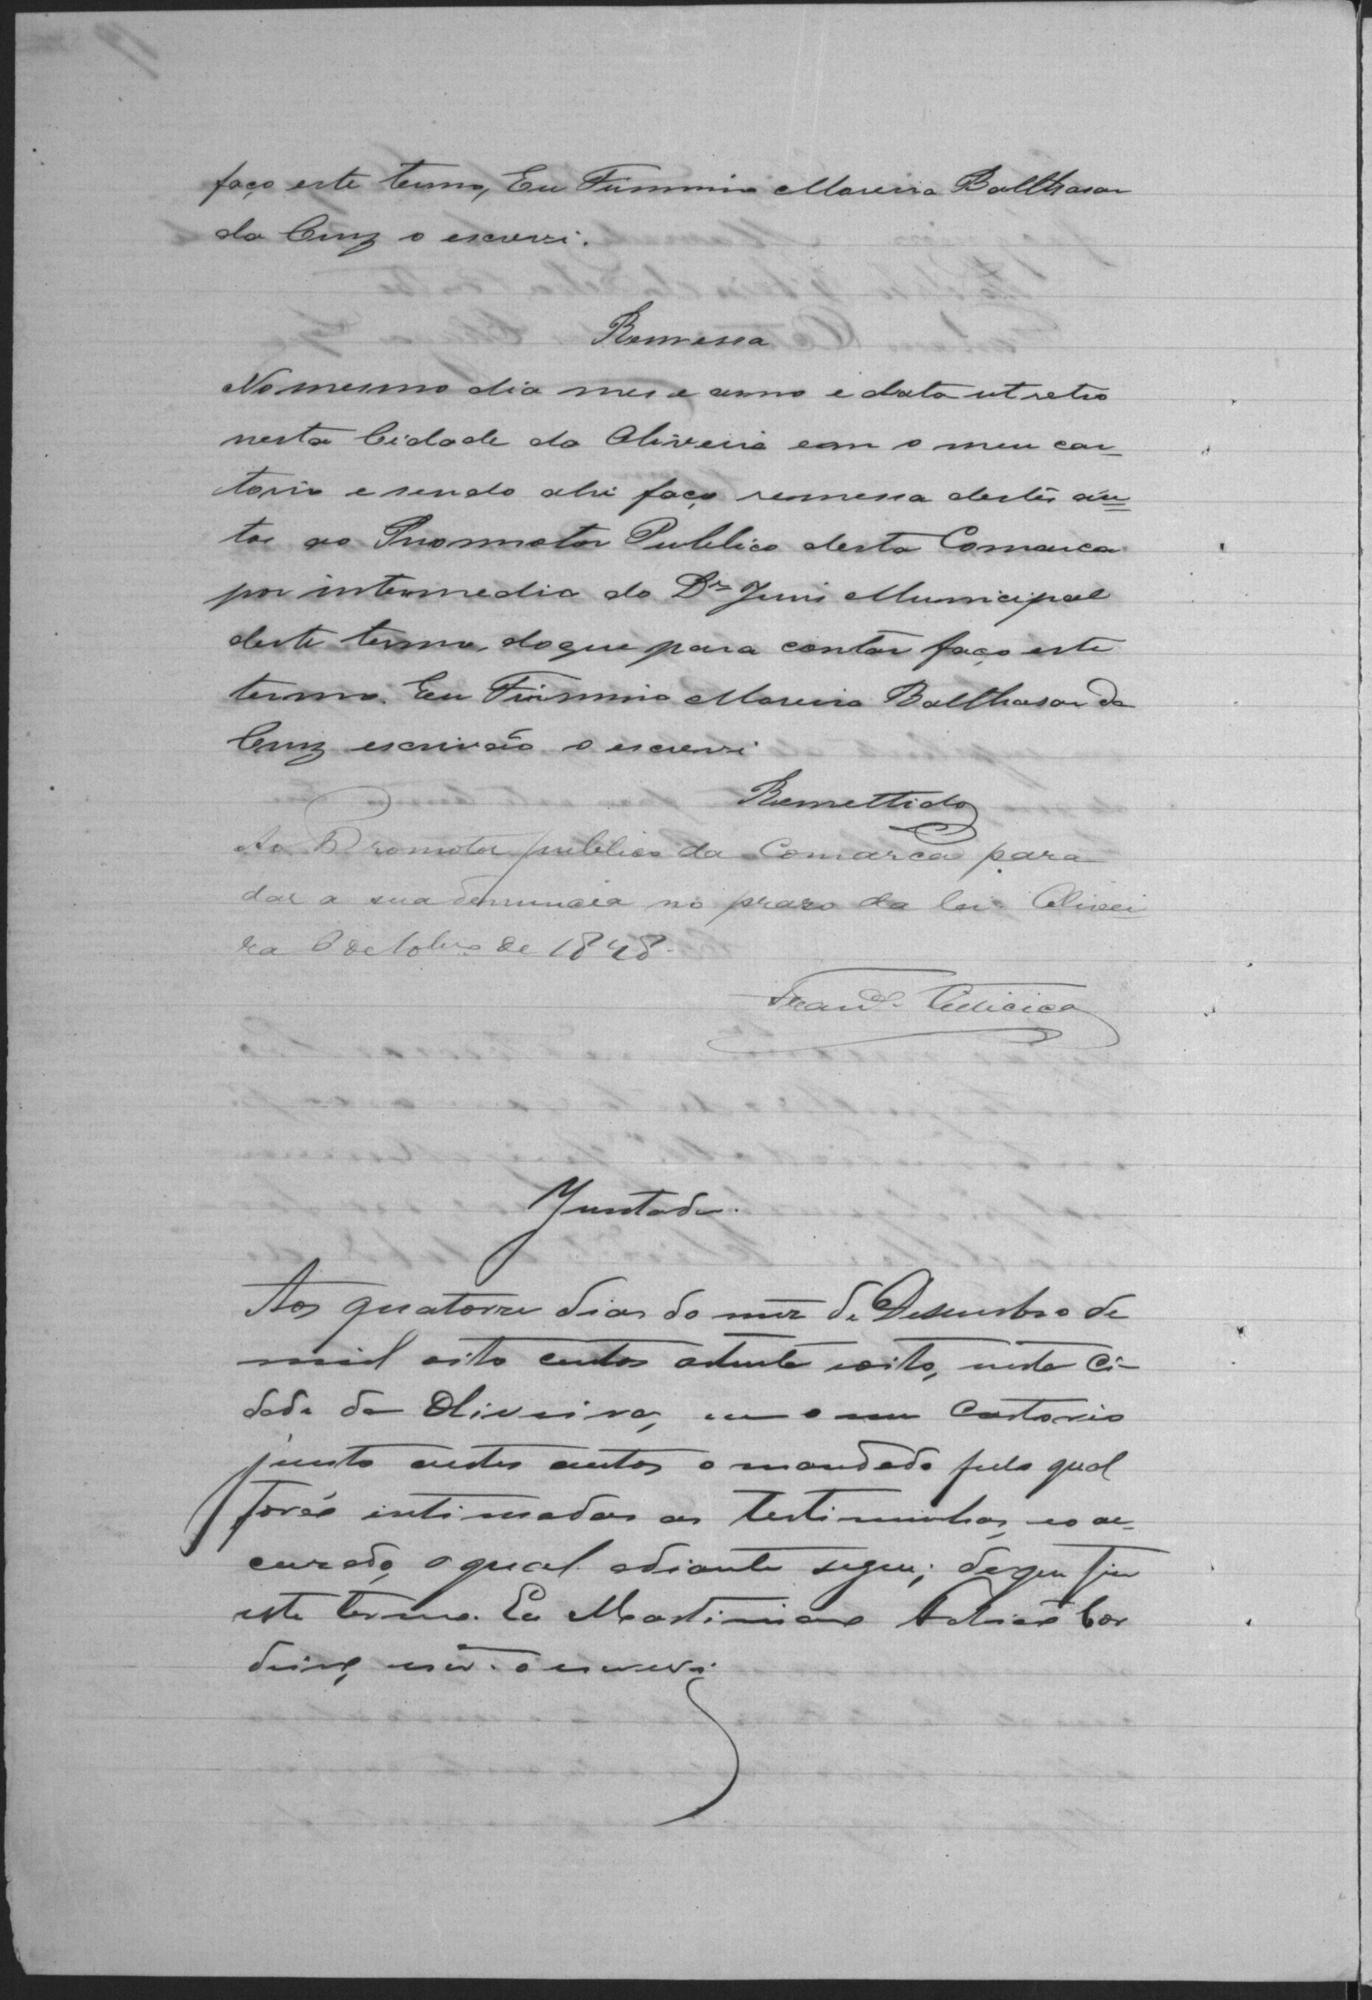 faço este termo, Eu Firmino Moreira Balthasar
da Cruz o escrevi.
Remessa
No mesmo dia mes e anno e data ut retro
nesta Cidade da Oliveira em o meu car=
torio e sendo ahi faço remessa destes au=
tos ao Promotor Publico desta Comarca
por intermedio do Dr Juiz Municipal
deste termo, do que para constar faço este
termo. Eu Firmino Moreira Balthasar da
Cruz escrivão o escrevi
Remettido
Ao Promotor publico da Comarca para
dar a sua denuncia no praso da lei. Olivei
ra Octobro de 18
Juntada.
Aos quatorze dias do mez de Desembro de
mil oito centos oitenta e oito, nesta Ci-
dade da Oliveira, em o meu Cartorio
junto nestes autos o mandado pelo qual
forão intimadas as testimunhas, e o ac-
cusado, o qual adiante segue; do que fiz
este termo. Eu Martiniano
o escrevi.